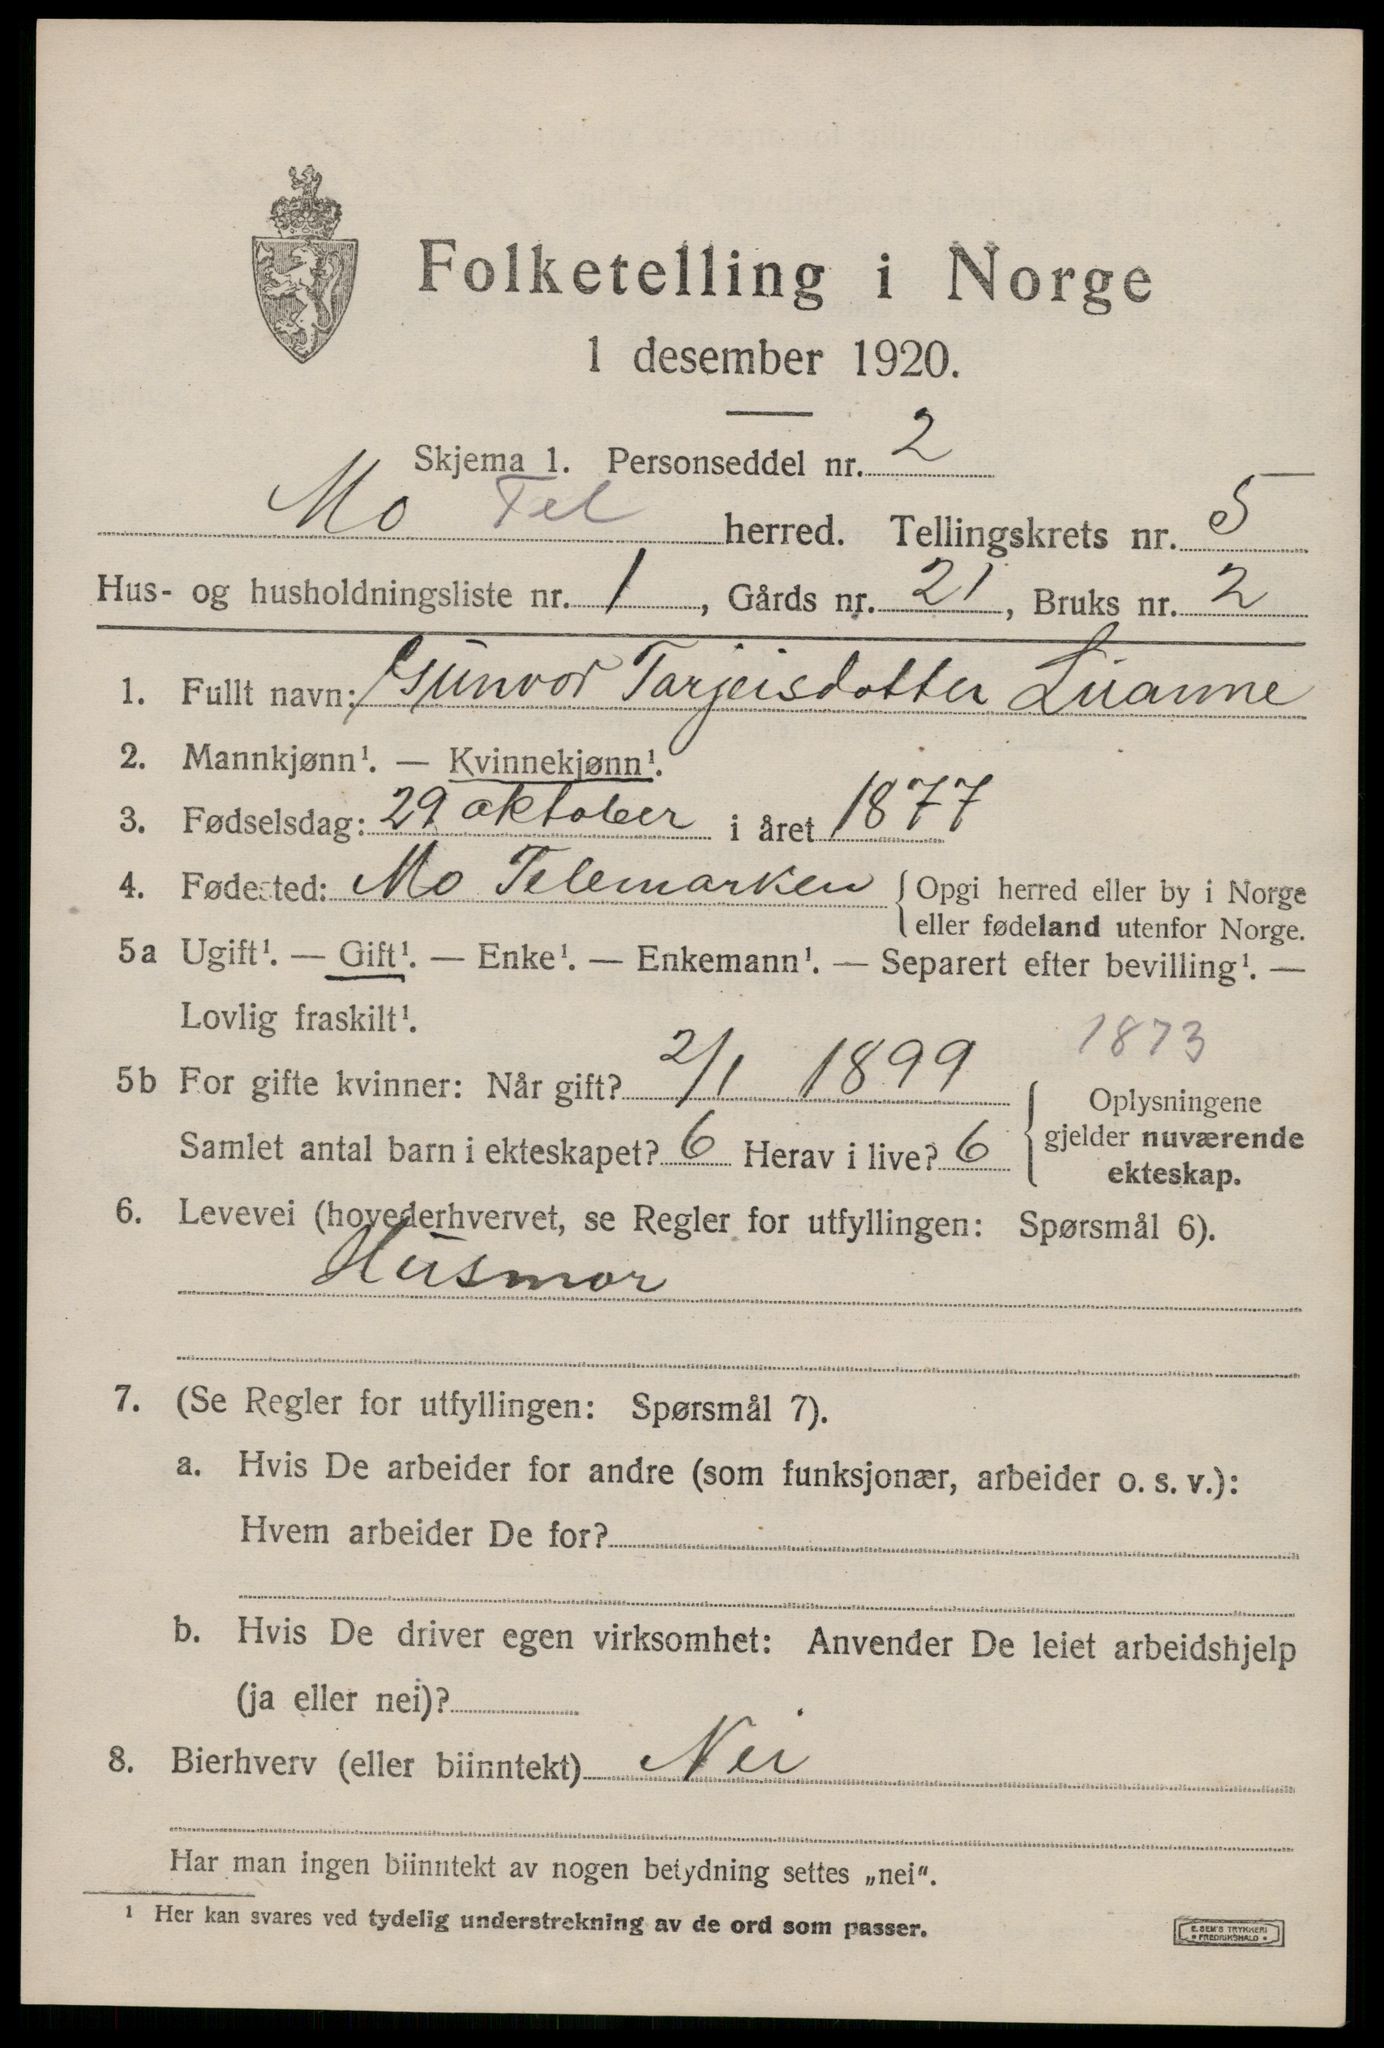 Folketelling i Norge
1 desember 1920.
Skjema 1. Personseddel nr. 2
Mo Tel herred. Tellingskrets nr. 5
Hus- og husholdningsliste nr. 1, Gårds nr. 21, Bruks nr. 2
1. Fullt navn: Gunvor Tarjeisdotter
2. Mannkjønn¹. — Kvinnekjønn¹.
3. Fødselsdag: 29 oktober i året 1877
4. Fødested: Mo Telemarken { Opgi herred eller by i Norge
eller fødeland utenfor Norge.
5a Ugift¹. — Gift¹. — Enke¹. — Enkemann¹. — Separert efter bevilling¹. —
Lovlig fraskilt¹.
1873
5b For gifte kvinner: Når gift? 2/1 1899
Samlet antal barn i ekteskapet? 6 Herav i live? 6
Oplysningene
gjelder nuværende
ekteskap.
6. Levevei (hovederhvervet, se Regler for utfyllingen: Spørsmål 6).
Husmor
7. (Se Regler for utfyllingen: Spørsmål 7).
a. Hvis De arbeider for andre (som funksjonær, arbeider o. s. v.):
Hvem arbeider De for?
b. Hvis De driver egen virksomhet: Anvender De leiet arbeidshjelp
(ja eller nei)?
8. Bierhverv (eller biinntekt) Nei
Har man ingen biinntekt av nogen betydning settes „nei“.
¹ Her kan svares ved tydelig understrekning av de ord som passer.
E. SEM'S TRYKKERI
FREDRIKSHALD